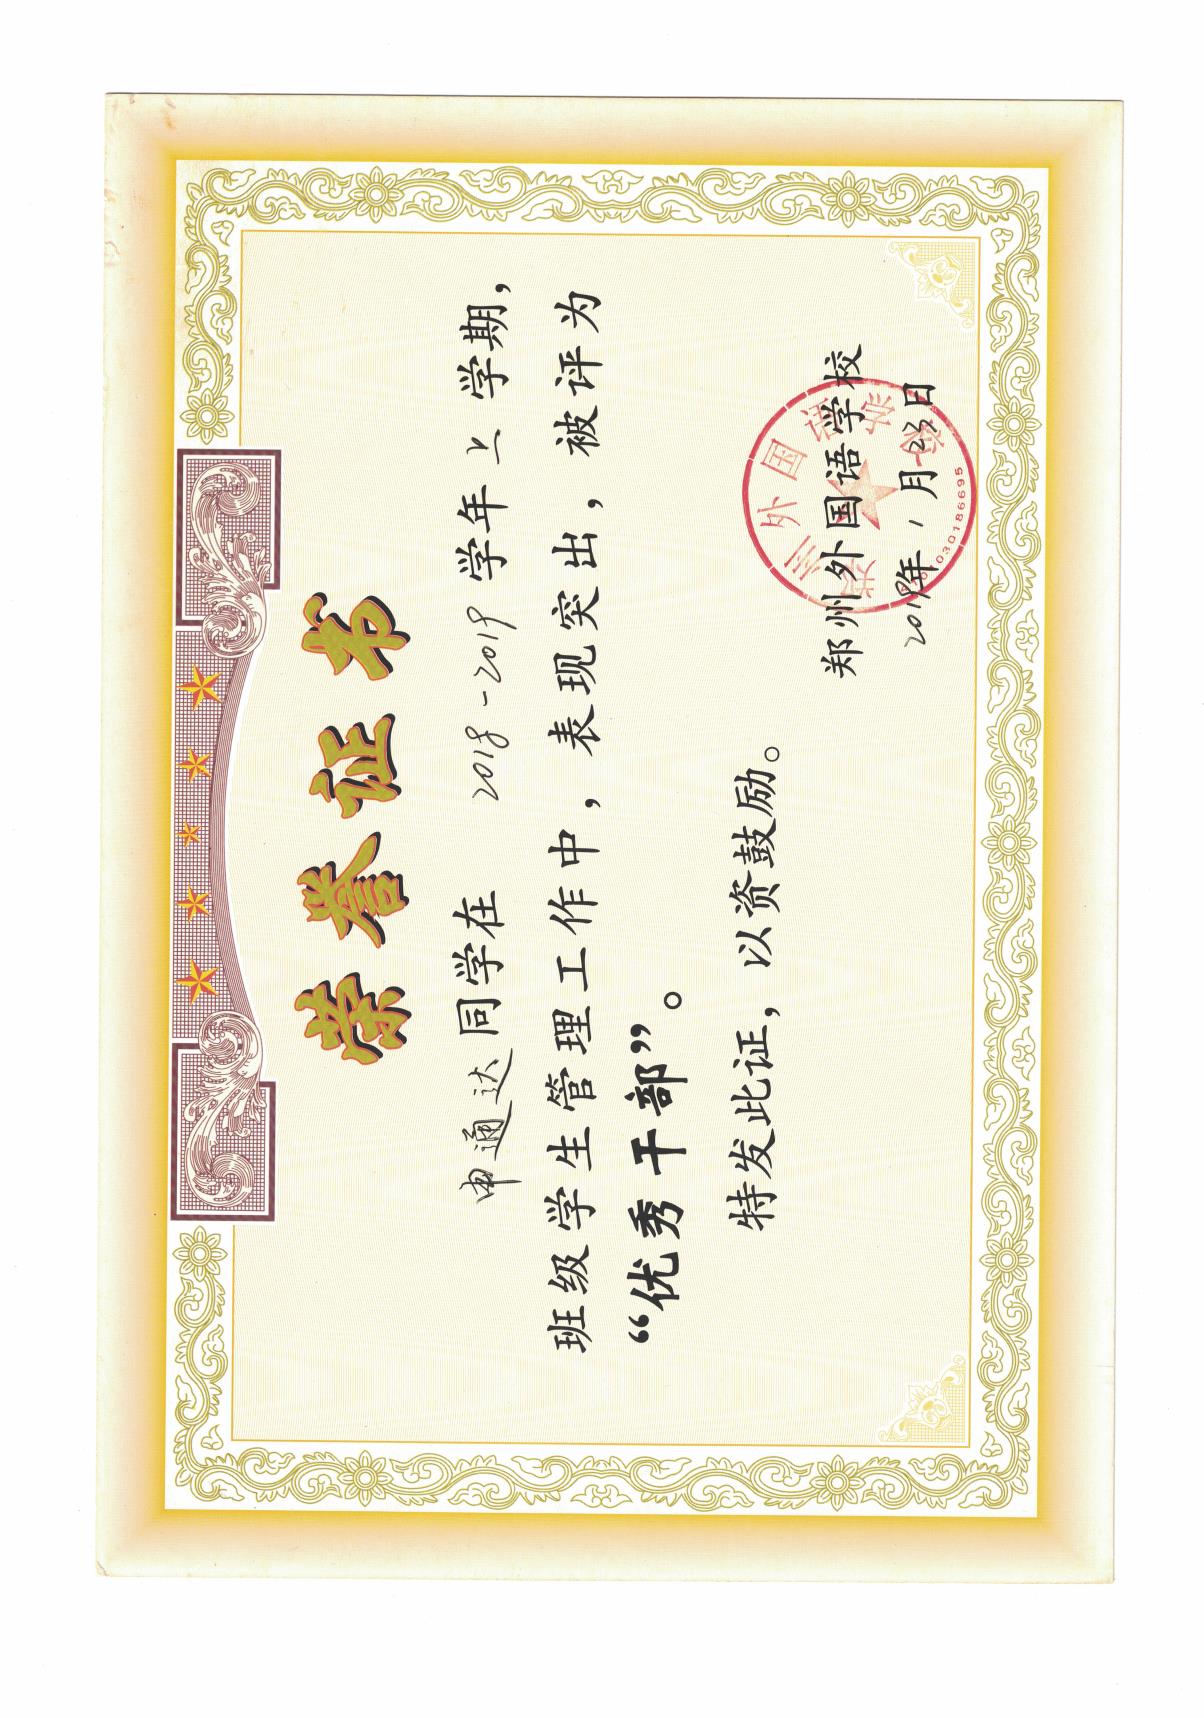 荣誉证书
申通达同学在 2018-2019学年上学期,
班级学生管理工作中，表现突出，被评为
“优秀干部”。
特发此证，以资鼓励。
郑州外国语学校
2019年1月23日
郑州外国语学校
4101030186695